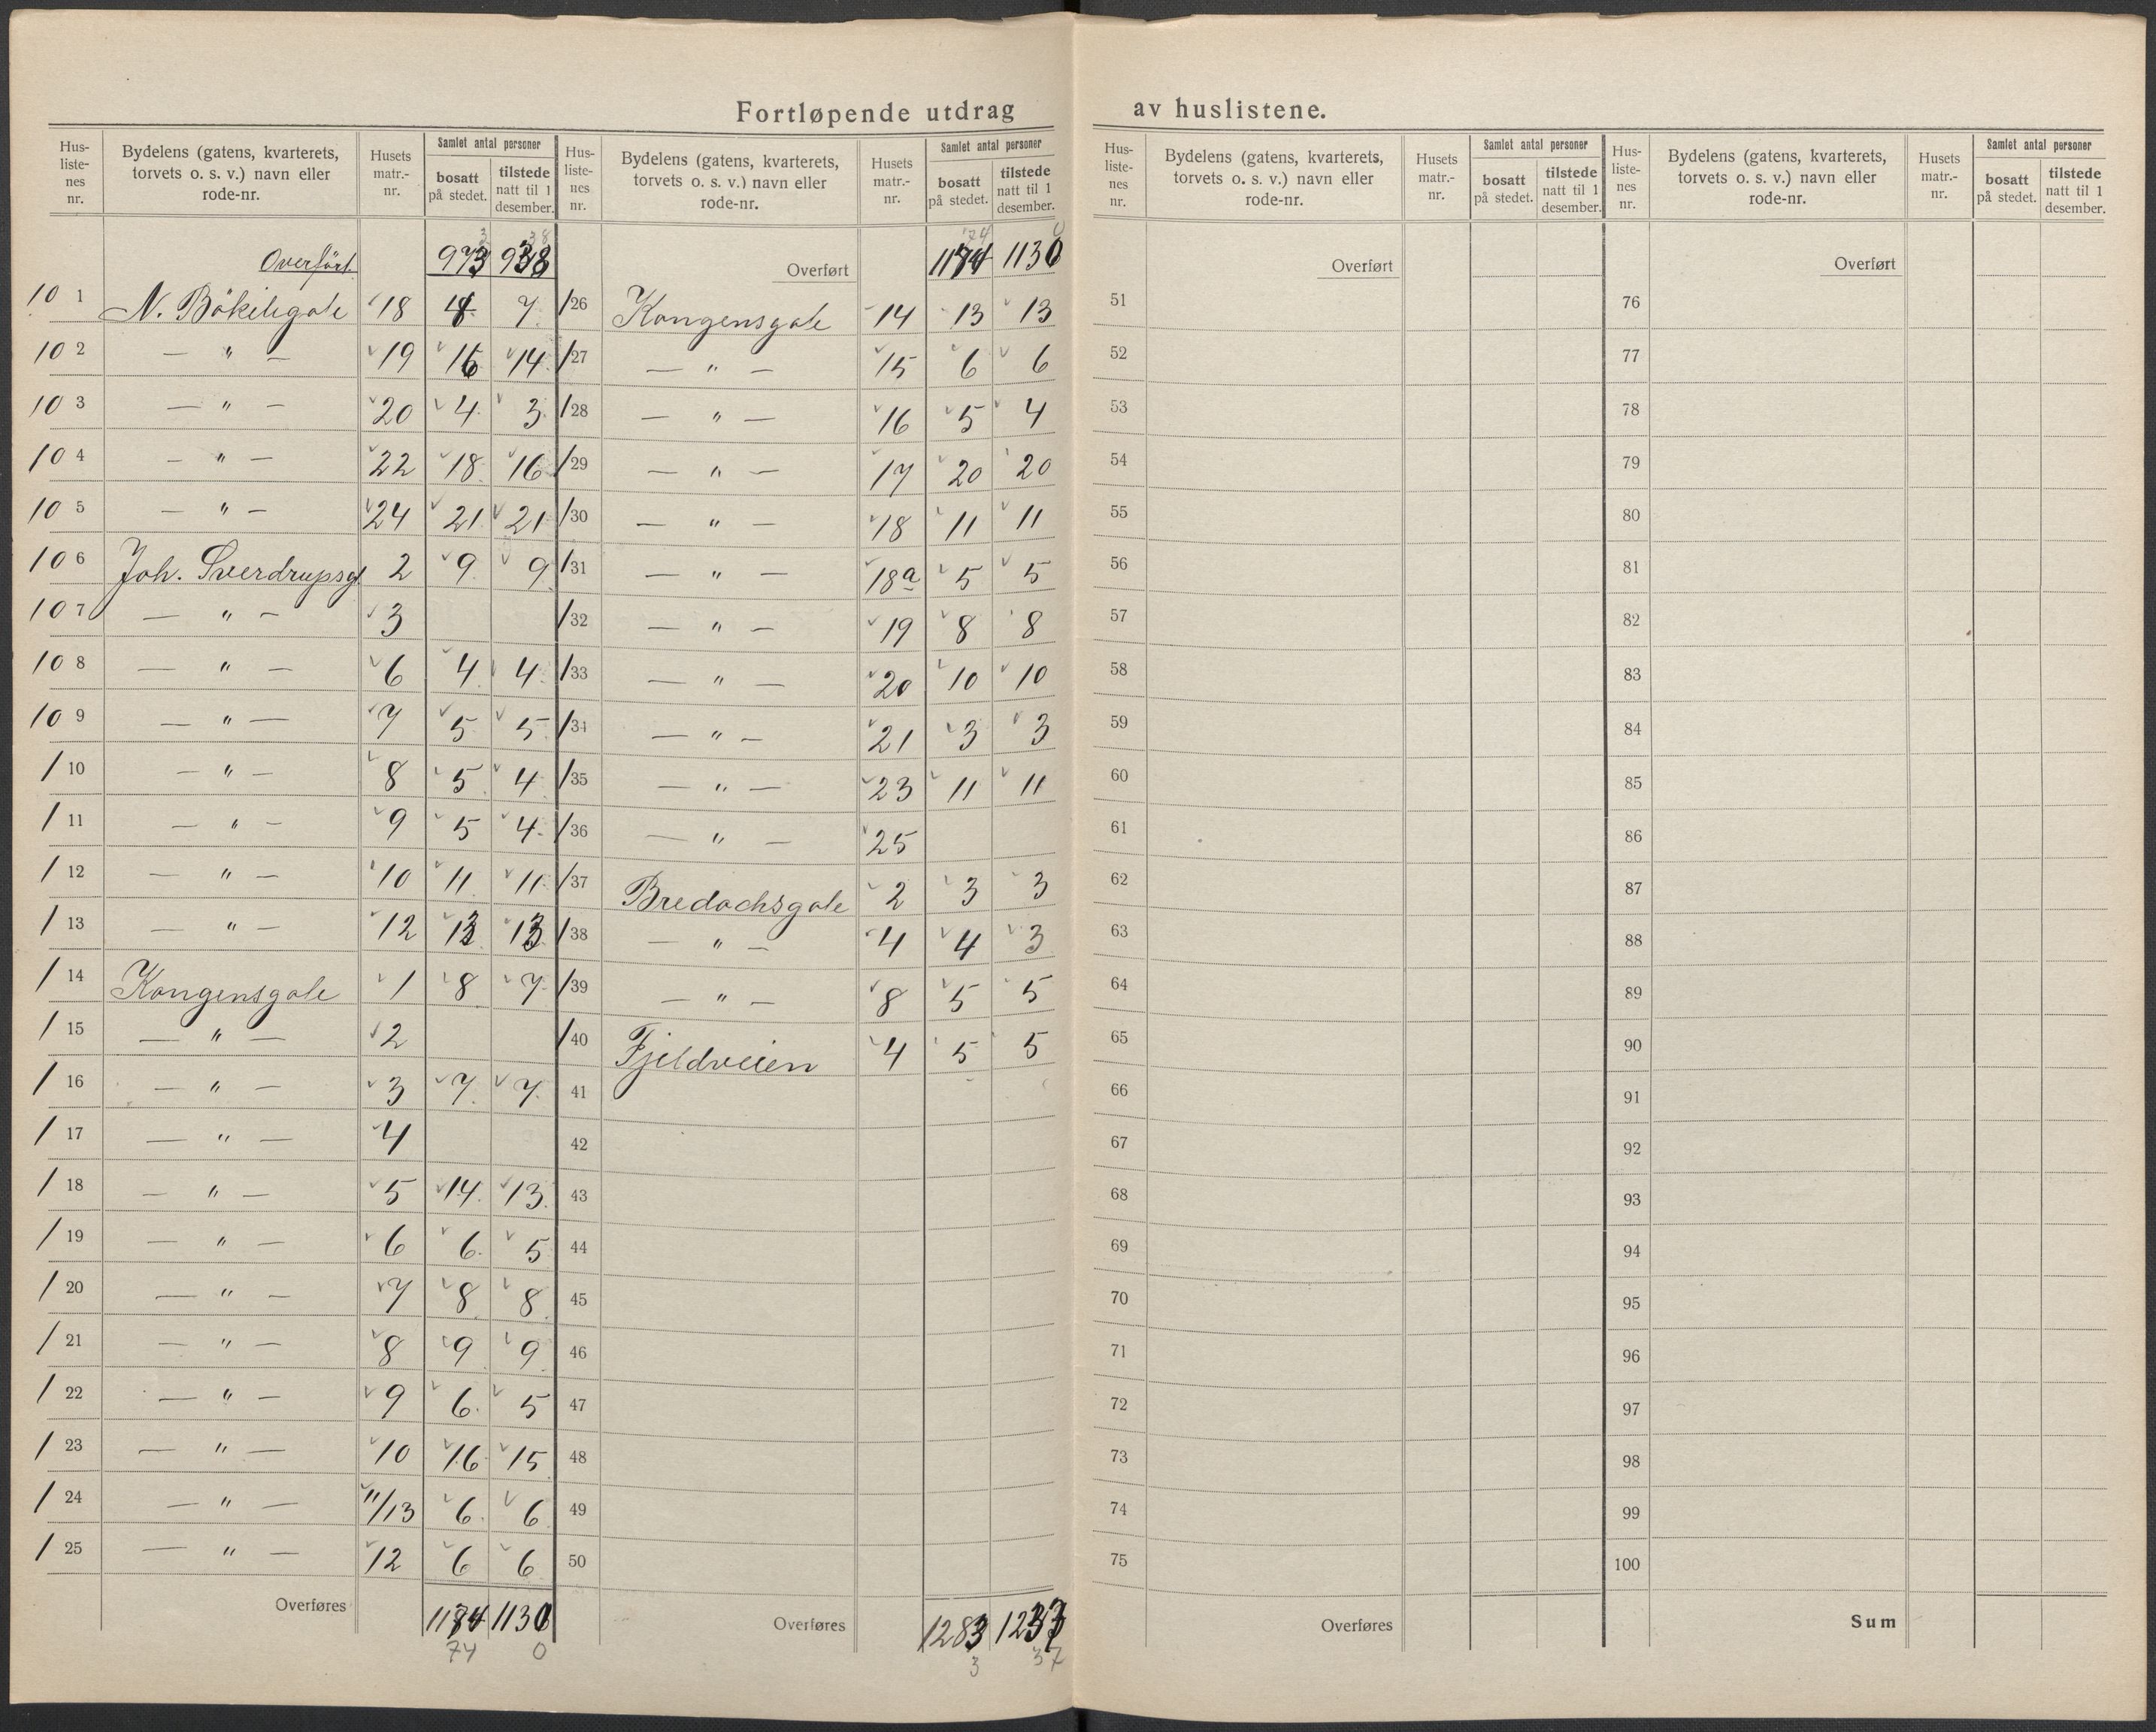 Fortløpende utdrag av huslistene.
Hus-listenes nr. Bydelens (gatens, kvarterets, torvets o. s. v.) navn eller rode-nr. Husets matr.-nr. Samlet antal personer bosatt på stedet. tilstede natt til 1 desember.
Overført 973 938
10 1 N. Bökeligate 18 8 7
10 2 — " — 19 16 14
10 3 — " — 20 4 3
10 4 — " — 22 18 16
10 5 — " — 24 21 21
10 6 Joh. Sverdrupsgt 2 9 9
10 7 — " — 3
10 8 — " — 6 4 4
10 9 — " — 7 5 5
/ 10 — " — 8 5 4
/ 11 — " — 9 5 4
/ 12 — " — 10 11 11
/ 13 — " — 12 13 13
/ 14 Kongensgate 1 8 7
/ 15 — " — 2
/ 16 — " — 3 7 7
/ 17 — " — 4
/ 18 — " — 5 14 13
/ 19 — " — 6 6 5
/ 20 — " — 7 8 8
/ 21 — " — 8 9 9
/ 22 — " — 9 6 5
/ 23 — " — 10 16 15
/ 24 — " — 11/13 6 6
/ 25 — " — 12 6 6
Overføres 1174 1130
74 0
Hus-listenes nr. Bydelens (gatens, kvarterets, torvets o. s. v.) navn eller rode-nr. Husets matr.-nr. Samlet antal personer bosatt på stedet. tilstede natt til 1 desember.
74 0
Overført 1174 1130
/26 Kongensgate 14 13 13
/27 — " — 15 6 6
/28 — " — 16 5 4
/29 — " — 17 20 20
/30 — " — 18 11 11
/31 — " — 18a 5 5
/32 — " — 19 8 8
/33 — " — 20 10 10
/34 — " — 21 3 3
/35 — " — 23 11 11
/36 — " — 25
/37 Bredochsgate 2 3 3
/38 — " — 4 4 3
/39 — " — 8 5 5
/40 Fjeldveien 4 5 5
41
42
43
44
45
46
47
48
49
50
Overføres 1283 1237
3 37
Hus-listenes nr. Bydelens (gatens, kvarterets, torvets o. s. v.) navn eller rode-nr. Husets matr.-nr. Samlet antal personer bosatt på stedet. tilstede natt til 1 desember.
Overført
51
52
53
54
55
56
57
58
59
60
61
62
63
64
65
66
67
68
69
70
71
72
73
74
75
Overføres
Hus-listenes nr. Bydelens (gatens, kvarterets, torvets o. s. v.) navn eller rode-nr. Husets matr.-nr. Samlet antal personer bosatt på stedet. tilstede natt til 1 desember.
Overført
76
77
78
79
80
81
82
83
84
85
86
87
88
89
90
91
92
93
94
95
96
97
98
99
100
Sum